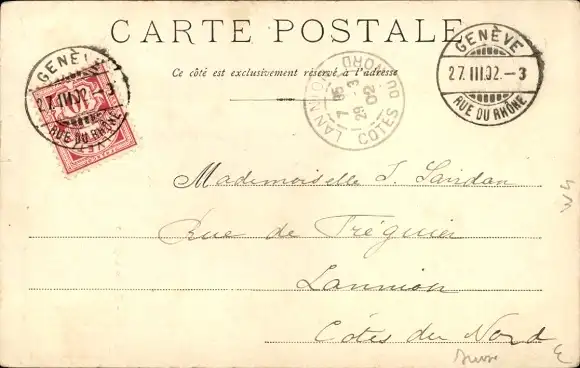 CARTE POSTALE
Ce côté est exclusivement réservé à l'adresse
GENÈVE
27.III.02.-3
RUE DU RHÔNE
GENÈVE
27.III.02.-3
RUE DU RHÔNE
LANNION
28 -3 02
COTES DU NORD
Mademoiselle J. Landan
Rue de Tréguier
Lannion
Côtes du Nord